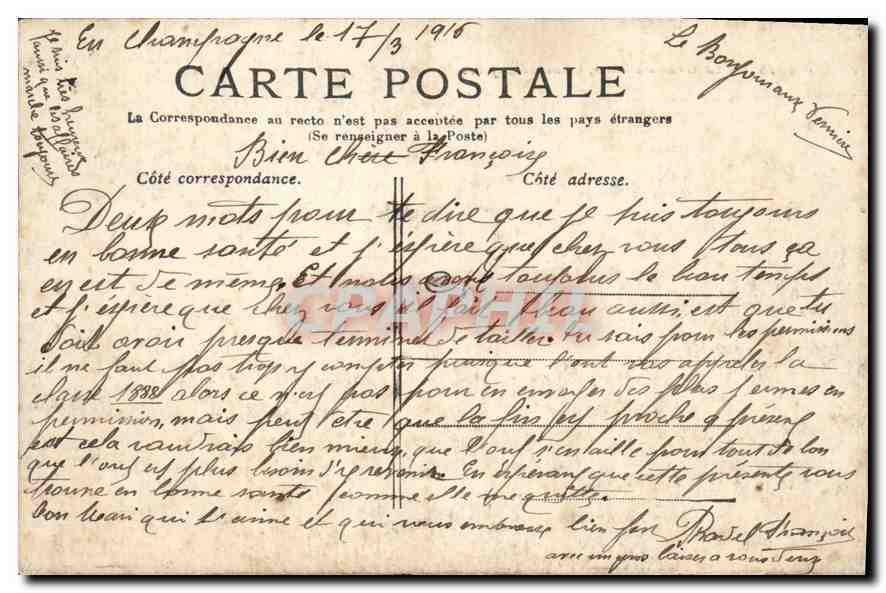 En Champagne le 17/3 1916
Le Bonjour aux
je suis très heureux
aussi que les affaires
marche toujours
CARTE POSTALE
La Correspondance au recto n'est pas acceptée par tous les pays étrangers
(Se renseigner à la Poste)
Bien chère Françoise
Côté correspondance.
Côté adresse.
Deux mots pour te dire que je suis toujours
en bonne santé et j'éspère que chez vous tous ça
en est de même. Et nous avons toujours le beau temps
et j'éspère que chez vous il fait beau aussi, est que tu
doit avoir presque terminé de tailler. tu sais pour les permissions
il ne faut pas trop y compter puisque l'ont vas appeler la
classe 1888 alors ce n'es pas pour en envoyer des plus jeunes en
permission, mais peut etre que la fin es proche a présent
et cela vaudrais bien mieux, que l'ont s'en aille pour tout de bon
que l'ont es plus besoin d'y revenir. En espérant que cette présente vous
trouve en bonne santé comme elle me quitte.
ton Mari qui t'aime et qui vous embrasse bien fort François
avec un gros baiser a vous deux
CPAPHIL